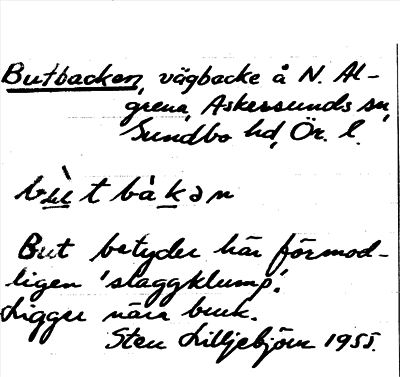 Butbacken, vägbacke å N. Al-
grena, Askersunds sn,
Sundbo hd, Ör. l.
bùtbàkən
But betyder här förmod-
ligen 'slaggklump'.
Ligger nära bruk.
Sten Lilljebjörn 1955.